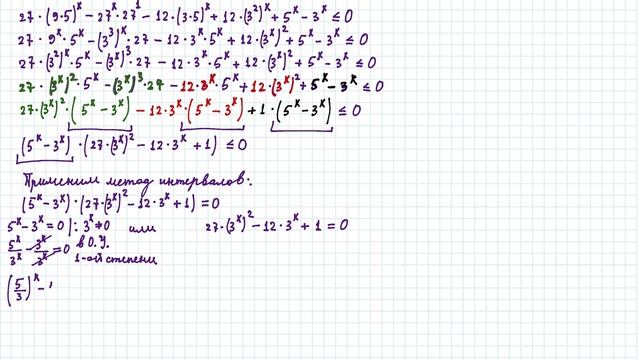 27·(9·5)^x − 27^x·27^1 − 12·(3·5)^x + 12·(3^2)^x + 5^x − 3^x ≤ 0
27·9^x·5^x − (3^3)^x·27 − 12·3^x·5^x + 12·(3^x)^2 + 5^x − 3^x ≤ 0
27·(3^2)^x·5^x − (3^x)^3·27 − 12·3^x·5^x + 12·(3^x)^2 + 5^x − 3^x ≤ 0
27·(3^x)^2·5^x − (3^x)^3·27 − 12·3^x·5^x + 12·(3^x)^2 + 5^x − 3^x ≤ 0
27·(3^x)^2·(5^x − 3^x) − 12·3^x·(5^x − 3^x) + 1·(5^x − 3^x) ≤ 0
(5^x − 3^x)·(27·(3^x)^2 − 12·3^x + 1) ≤ 0
Применим метод интервалов:
(5^x − 3^x)·(27·(3^x)^2 − 12·3^x + 1) = 0
5^x − 3^x = 0 |: 3^x ≠ 0 или 27·(3^x)^2 − 12·3^x + 1 = 0
5^x/3^x − 3^x/3^x = 0 в О.У.
1-ой степени
(5/3)^x −